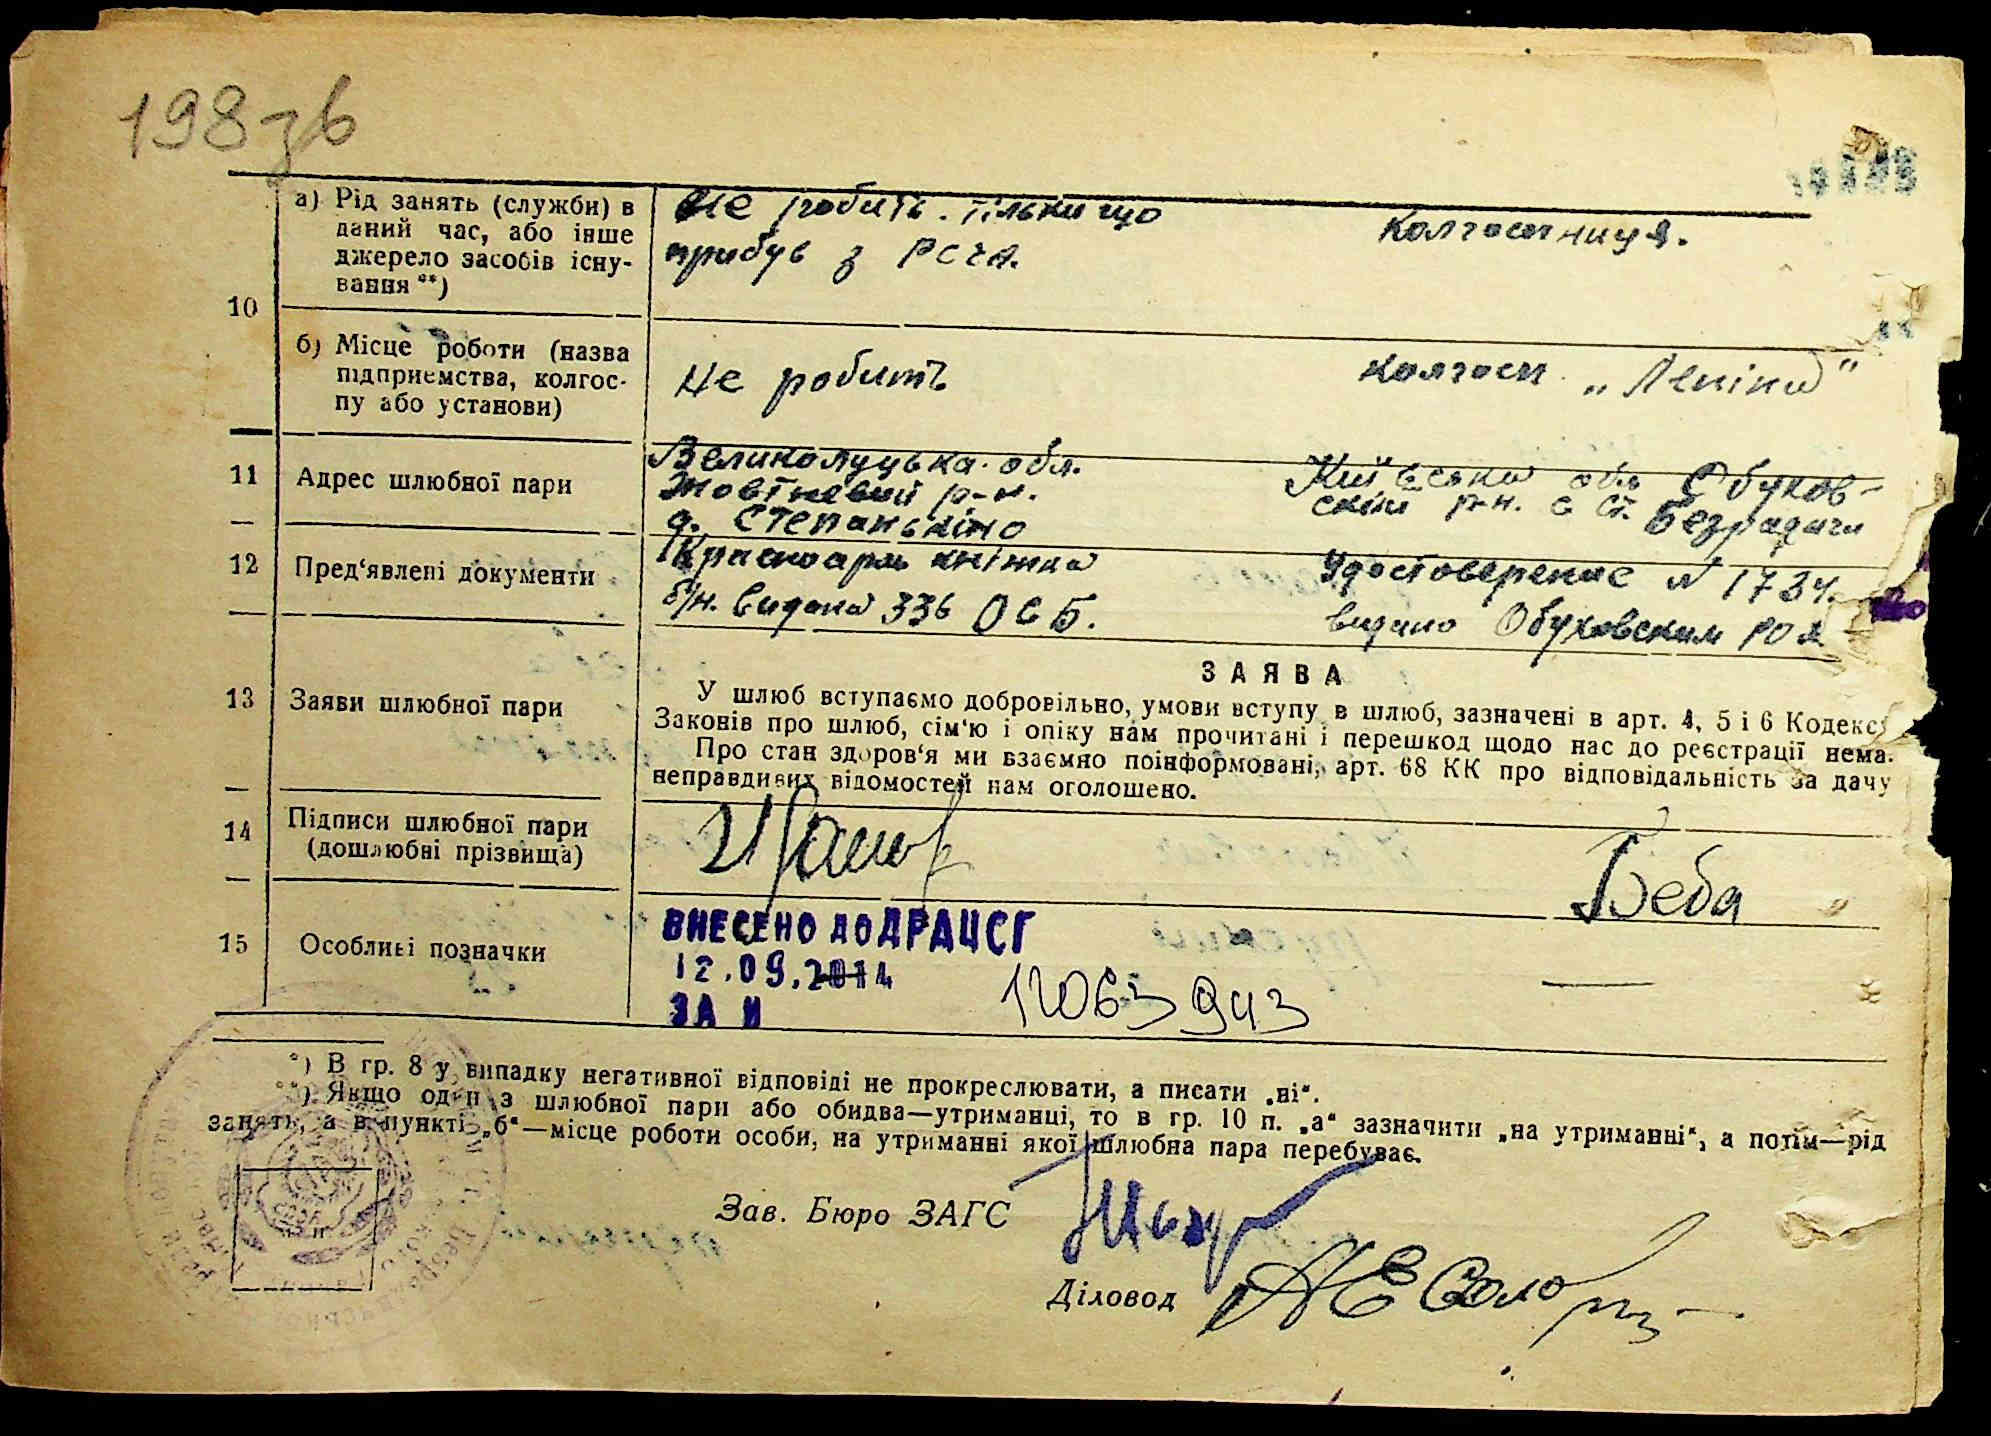 198 зв
а) Рід занять (служби) в
даний час, або інше
джерело засобів існу-
вання **)
Не робить. тільки що
прибув з РСЧА.
Колгоспниця.
10
б) Місце роботи (назва
підприємства, колгос-
пу або установи)
Не робить
колгосп „Леніна"
11
Адрес шлюбної пари
Великолуцька обл.
Жовтневий р-н.
д. Степанькіно
Київська обл Обухов-
ский р-н. с Ст. Безрадичи
12
Пред'явлені документи
Красноарм книжка
б/н. видана 336 ОСБ.
Удостоверение N 1734.
видано Обуховским
13
Заяви шлюбної пари
ЗАЯВА
У шлюб вступаємо добровільно, умови вступу в шлюб, зазначені в арт. 4, 5 і 6 Кодексу
Законів про шлюб, сім'ю і опіку нам прочитані і перешкод щодо нас до реєстрації нема.
Про стан здоров'я ми взаємно поінформовані, арт. 68 КК про відповідальність за дачу
неправдивих відомостей нам оголошено.
14
Підписи шлюбної пари
(дошлюбні прізвища)
Беба
15
Особливі позначки
ВНЕСЕНО ДО ДРАЦСГ
12.09.2014
ЗА N
12063943
*) В гр. 8 у випадку негативної відповіді не прокреслювати, а писати „ні".
**) Якщо один з шлюбної пари або обидва—утриманці, то в гр. 10 п. „а" зазначити „на утриманні", а потім—рід
занять, а в пункті „б"—місце роботи особи, на утриманні якої шлюбна пара перебуває.
Зав. Бюро ЗАГС
Діловод